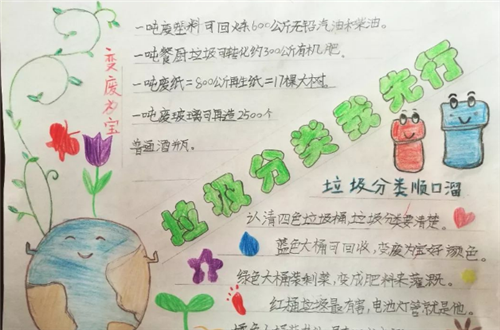 变废为宝
一吨废塑料可回炼600公斤无铅汽油和柴油。
一吨餐厨垃圾可转化约300公斤有机肥。
一吨废纸=800公斤再生纸=17棵大树。
一吨废玻璃可再造2500个
普通酒瓶。
垃圾分类我先行
垃圾分类顺口溜
认清四色垃圾桶,垃圾分类要清楚。
蓝色大桶可回收,变废为宝好颜色。
绿色大桶菜剩菜,变成肥料来灌溉。
红桶垃圾最有害,电池灯管就是他。